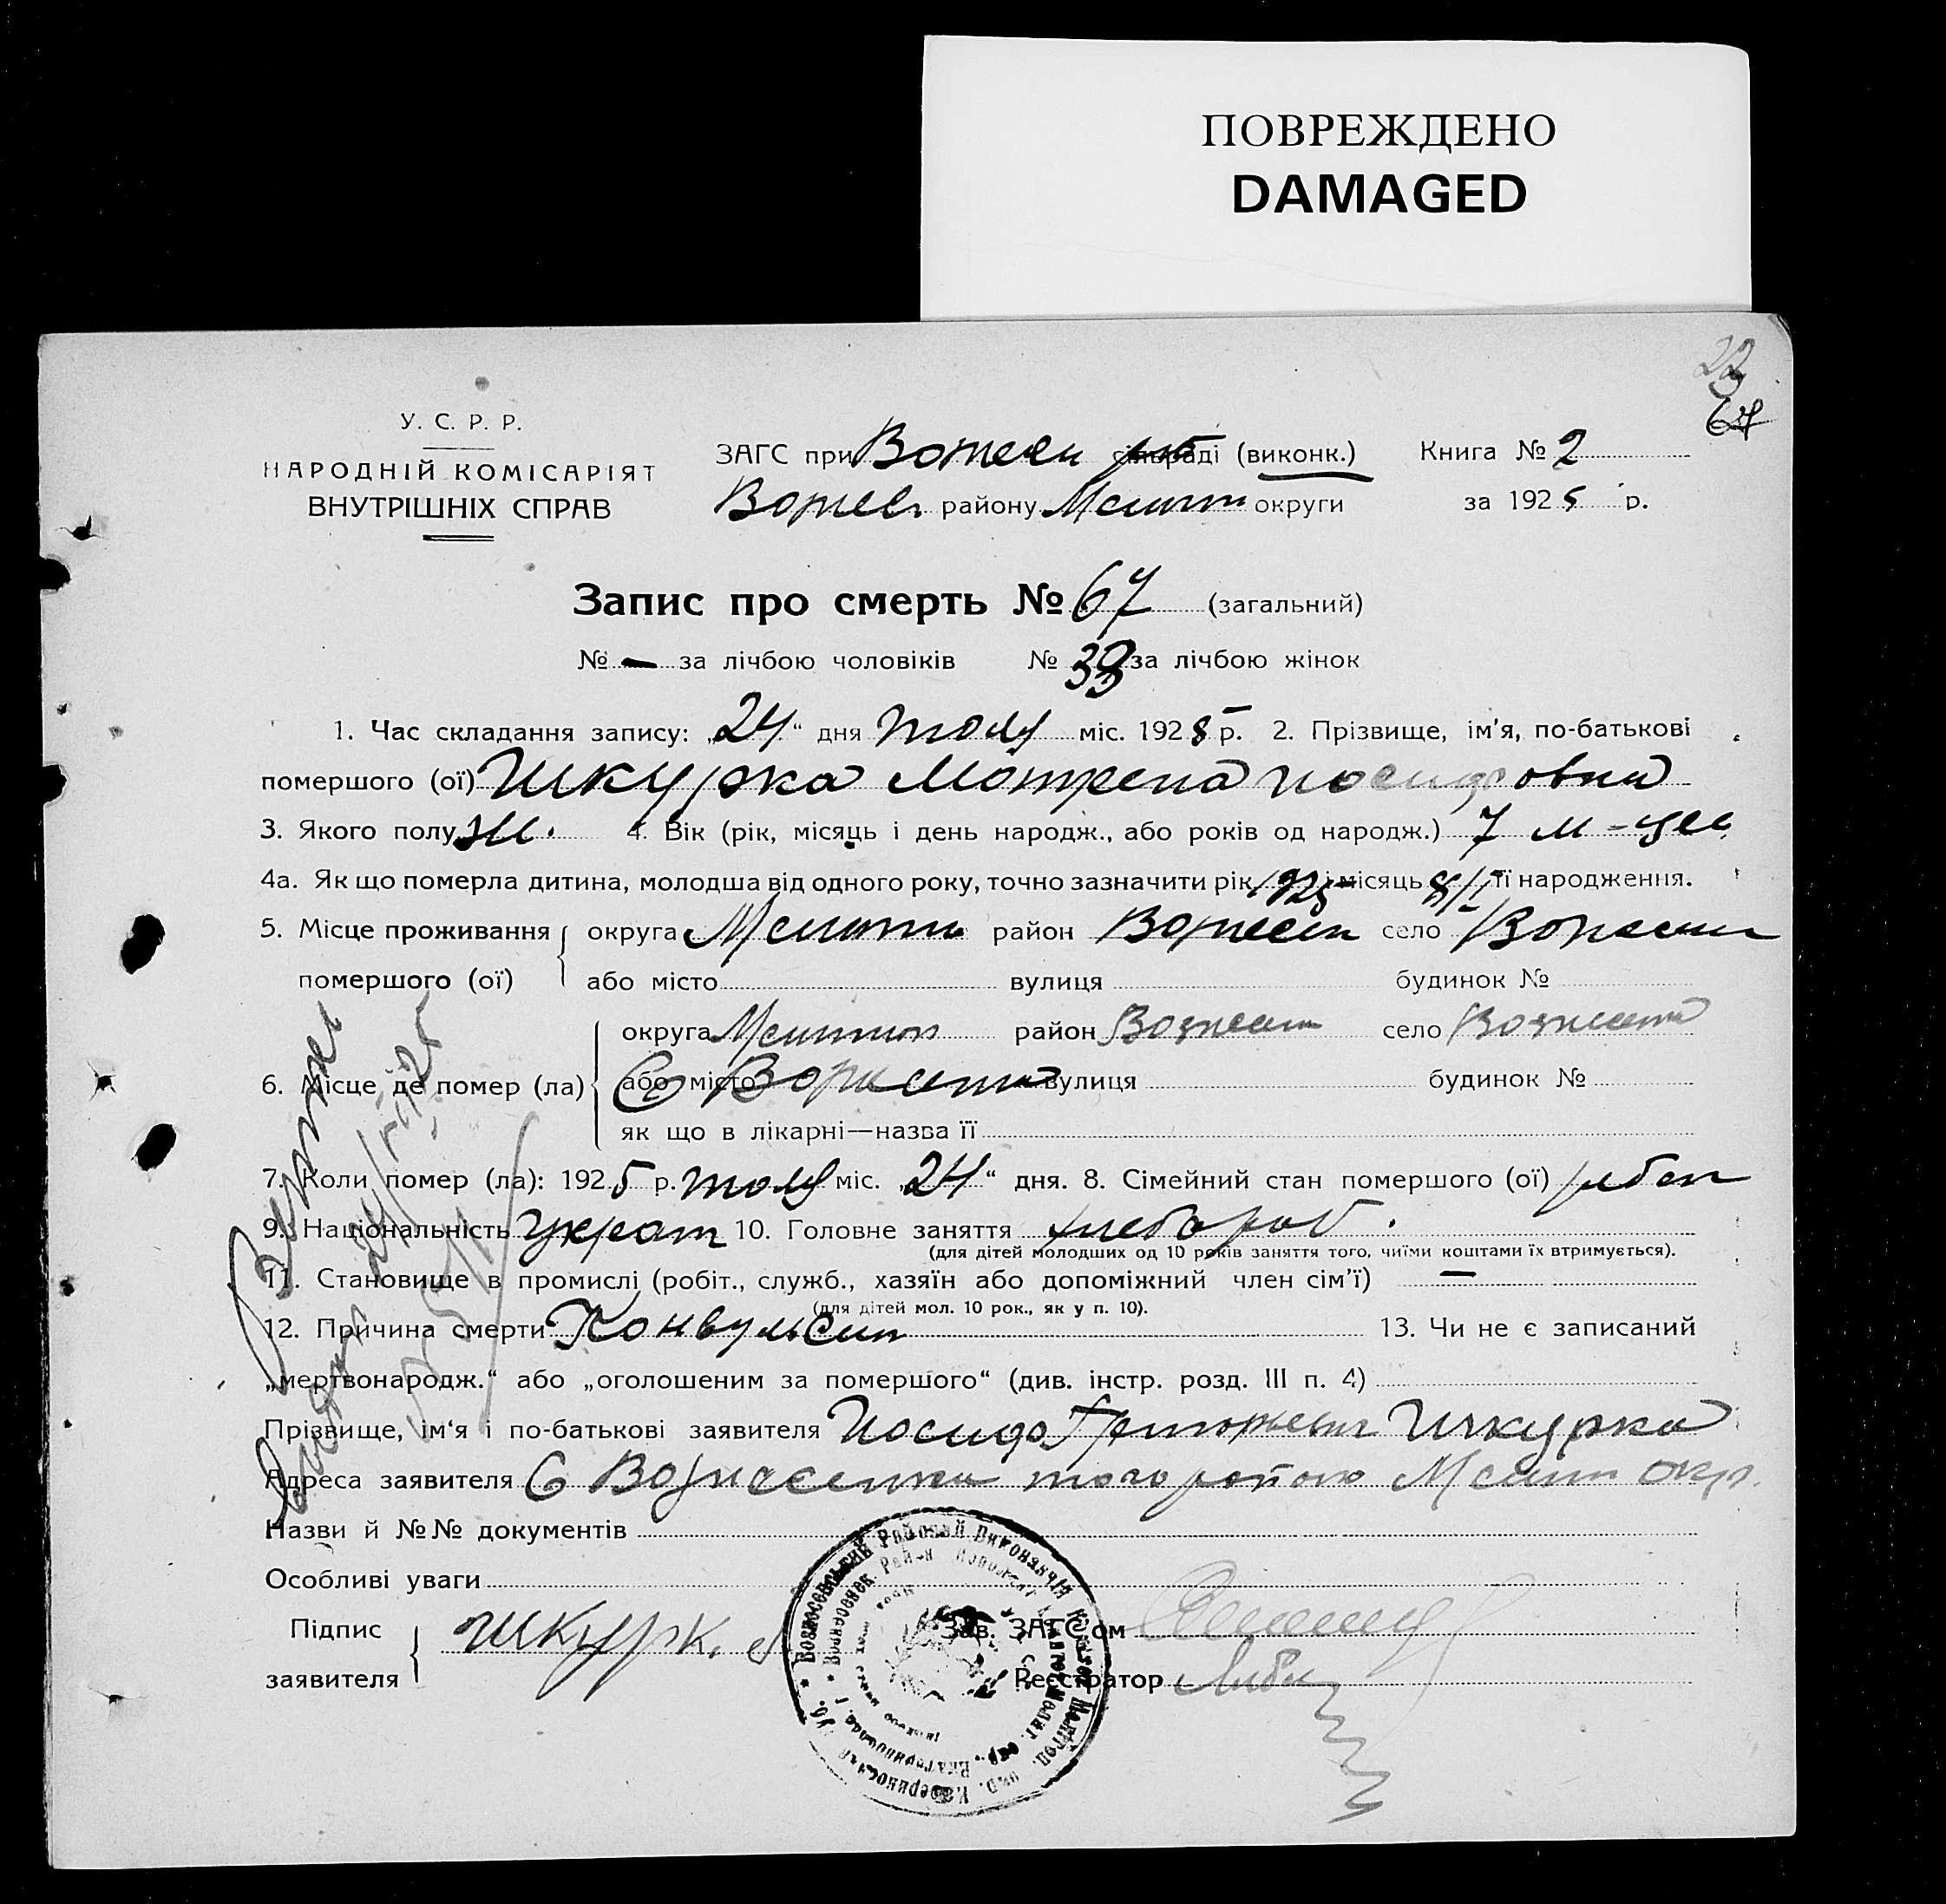 ПОВРЕЖДЕНО
DAMAGED
23
67
У. С. Р. Р.
НАРОДНІЙ КОМІСАРІЯТ
ВНУТРІШНІХ СПРАВ
ЗАГС при Вознесен сільраді (виконк.) Книга № 2
Вознес. району Мелитоп округи за 1925 р.
Запис про смерть № 67 (загальний)
№ — за лічбою чоловіків № 33 за лічбою жінок
1. Час складання запису: „24“ дня міс. 1925 р. 2. Прізвище, ім'я, по-батькові
помершого (ої) Шкурка Мотрена Иосифовна
3. Якого полу ж. 4. Вік (рік, місяць і день народж., або років од народж.) 7 м-цев
4а. Як що померла дитина, молодша від одного року, точно зазначити рік 1925 і місяць її народження.
5. Місце проживання округа Мелитоп район Вознесен село Вознесен
помершого (ої) або місто вулиця будинок №
округа Мелитоп район Вознесен село Вознесен
6. Місце де помер (ла) або місто С Вознесенка вулиця будинок №
як що в лікарні—назва її
7. Коли помер (ла): 1925 р. міс. „24“ дня. 8. Сімейний стан помершого (ої)
9. Національність Украин 10. Головне заняття хлебороб.
(для дітей молодших од 10 років заняття того, чиїми коштами їх втримується).
11. Становище в промислі (робіт., служб., хазяїн або допоміжний член сім'ї) —
(для дітей мол. 10 рок., як у п. 10).
12. Причина смерти Конвульсии 13. Чи не є записаний
„мертвонародж.“ або „оголошеним за помершого“ (див. інстр. розд. III п. 4)
Прізвище, ім'я і по-батькові заявителя Иосиф Григорьевич Шкурка
Адреса заявителя С Вознесенка того району Мелит окр.
Назви й №№ документів
Особливі уваги
Підпис Шкурк. Зав. ЗАГС'ом
заявителя Реєстратор